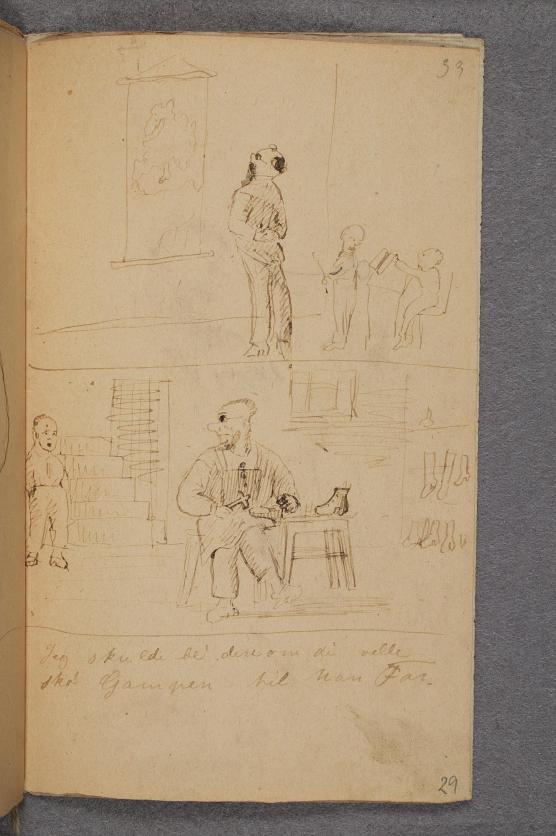 33
Jeg skulde be' dere om di velle
sko' Gampen til han Far.
29